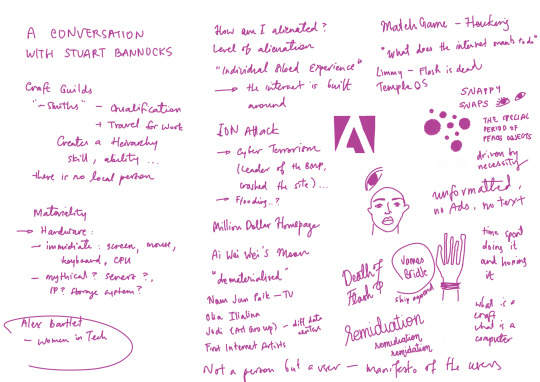 A CONVERSATION
WITH STUART BANNOCKS
Craft Guilds
"-Smiths" - Qualification
+ Travel for work
Creates a Hierarchy
skill, ability ...
there is no local person
Materiality
→ Hardware:
- immidiate: screen, mouse,
keyboard, CPU
- mythical? server?,
IP? Storage system?
Alex Bartlet
- Women in Tech
How am I alienated?
Level of alienation
"Individual Bleed Experience"
→ the internet is built
around
ION Attack
→ Cyber Terrorism
(Leader of the
crashed the site)...
→ Flooding..?
Million Dollar Homepage
Ai Wei Wei's Moon
"dematerialised"
Nam Jun Paik - TV
Olia Illalina
Jodi (Art Group) - diff. data
centers
First Internet Artists
Not a person but a user - manifesto of the users
Match Game -
"What does the internet want to do"
Limmy - Flash is dead
Temple OS
A
SNAPPY
SNAPS
THE SPECIAL
PERIOD OF
PEACE OBJECTS
driven by
necessity
unformatted,
no Ads, no text
Death of
Flash
James
Bridle
ship
time spent
doing it
and honing
it
Remidiation
remidiation
remidation
what is a
craft
what is a
computer